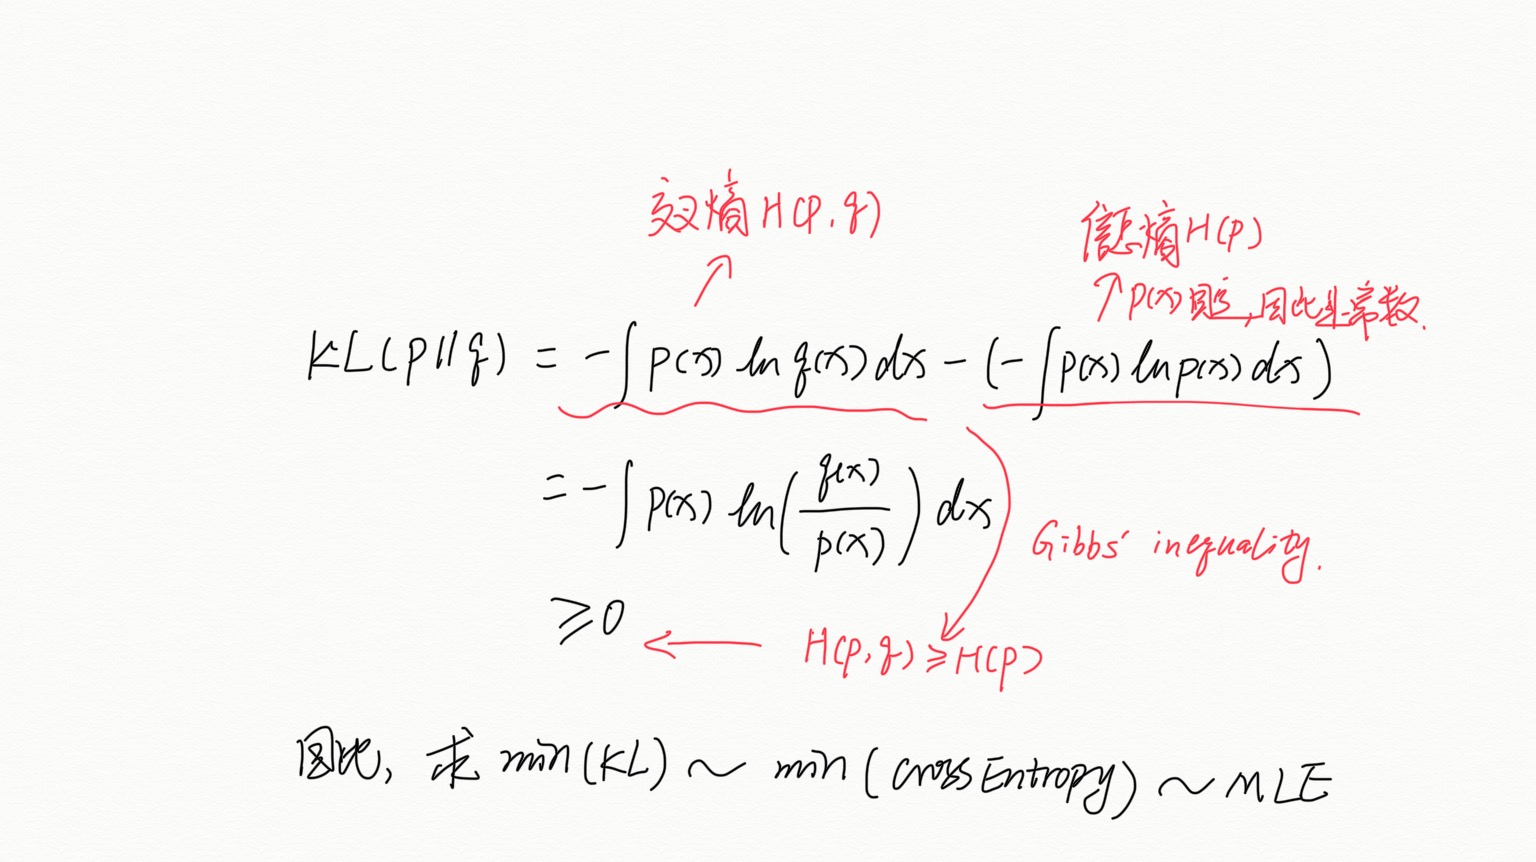 交叉熵 H(p,q)
信息熵 H(p)
p(x)固定,因此是常数.
KL(p||q) = -∫p(x) ln q(x) dx - (-∫p(x) ln p(x) dx)
= -∫p(x) ln(q(x)/p(x)) dx
Gibbs' inequality.
≥0
H(p,q) ≥ H(p)
因此, 求 min(KL) ~ min(crossEntropy) ~ MLE